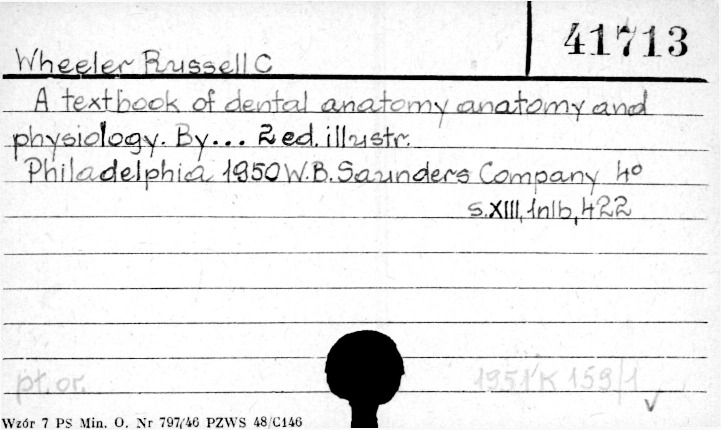 41713
Wheeler Russell C
A textbook of dental anatomy anatomy and
physiology. By... 2 ed. illustr.
Philadelphia 1950 W.B. Saunders Company 4º
s.XIII, 1nlb, 422
pł. or. 1951/K 159/1
Wzór 7 PS Min. O. Nr 797/46 PZWS 48/C146